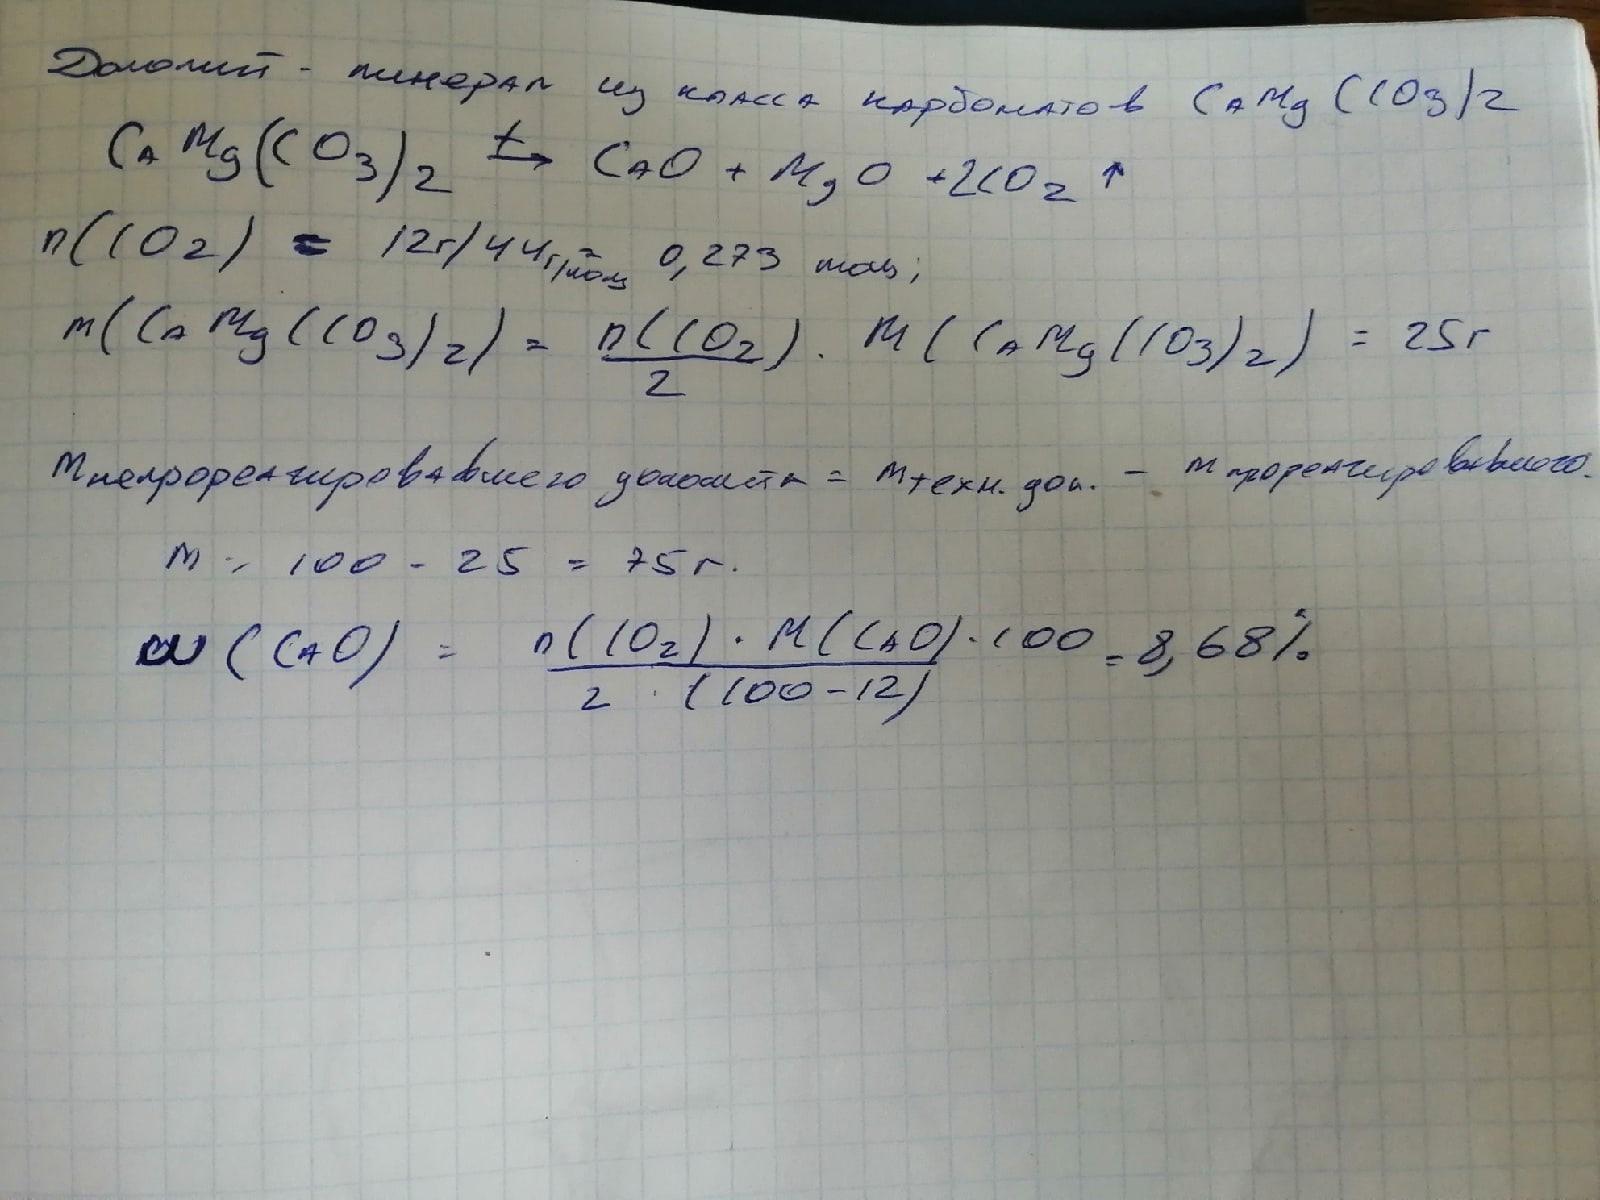 Доломит - минерал из класса карбонатов CaMg(CO3)2
CaMg(CO3)2 t→ CaO + MgO + 2CO2 ↑
n(CO2) = 12г/44г/моль = 0,273 моль;
m(CaMg(CO3)2) = n(CO2)/2 · M(CaMg(CO3)2) = 25г
mнепрореагировавшего доломита = mтехн. дол. - mпрореагировавшего.
m = 100 - 25 = 75г.
ω(CaO) = n(CO2) · M(CaO) · 100 / 2 · (100-12) = 8,68%